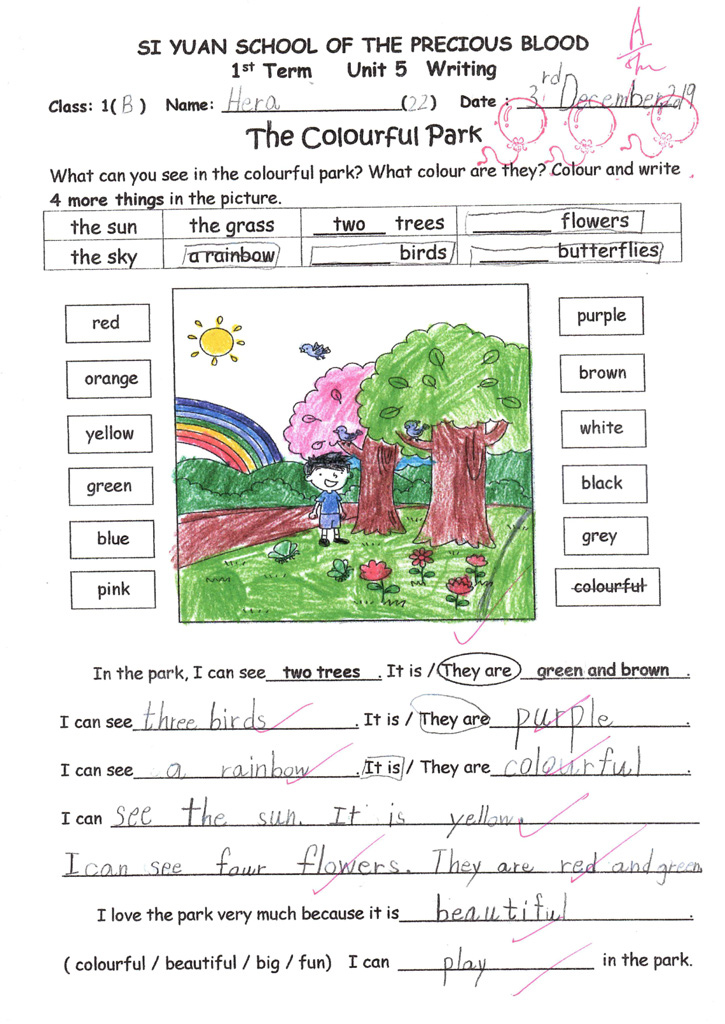 SI YUAN SCHOOL OF THE PRECIOUS BLOOD
1st Term Unit 5 Writing
A
Class: 1( B ) Name: Hera (22) Date : 3rd December 2019
The Colourful Park
What can you see in the colourful park? What colour are they? Colour and write
4 more things in the picture.
the sun the grass two trees ______ flowers
the sky a rainbow ______ birds ______ butterflies
red purple
orange brown
yellow white
green black
blue grey
pink colourful
In the park, I can see two trees . It is / They are green and brown .
I can see three birds . It is / They are purple .
I can see a rainbow . It is / They are colourful .
I can see the sun. It is yellow.
I can see four flowers. They are red and green
I love the park very much because it is beautiful .
( colourful / beautiful / big / fun) I can play in the park.